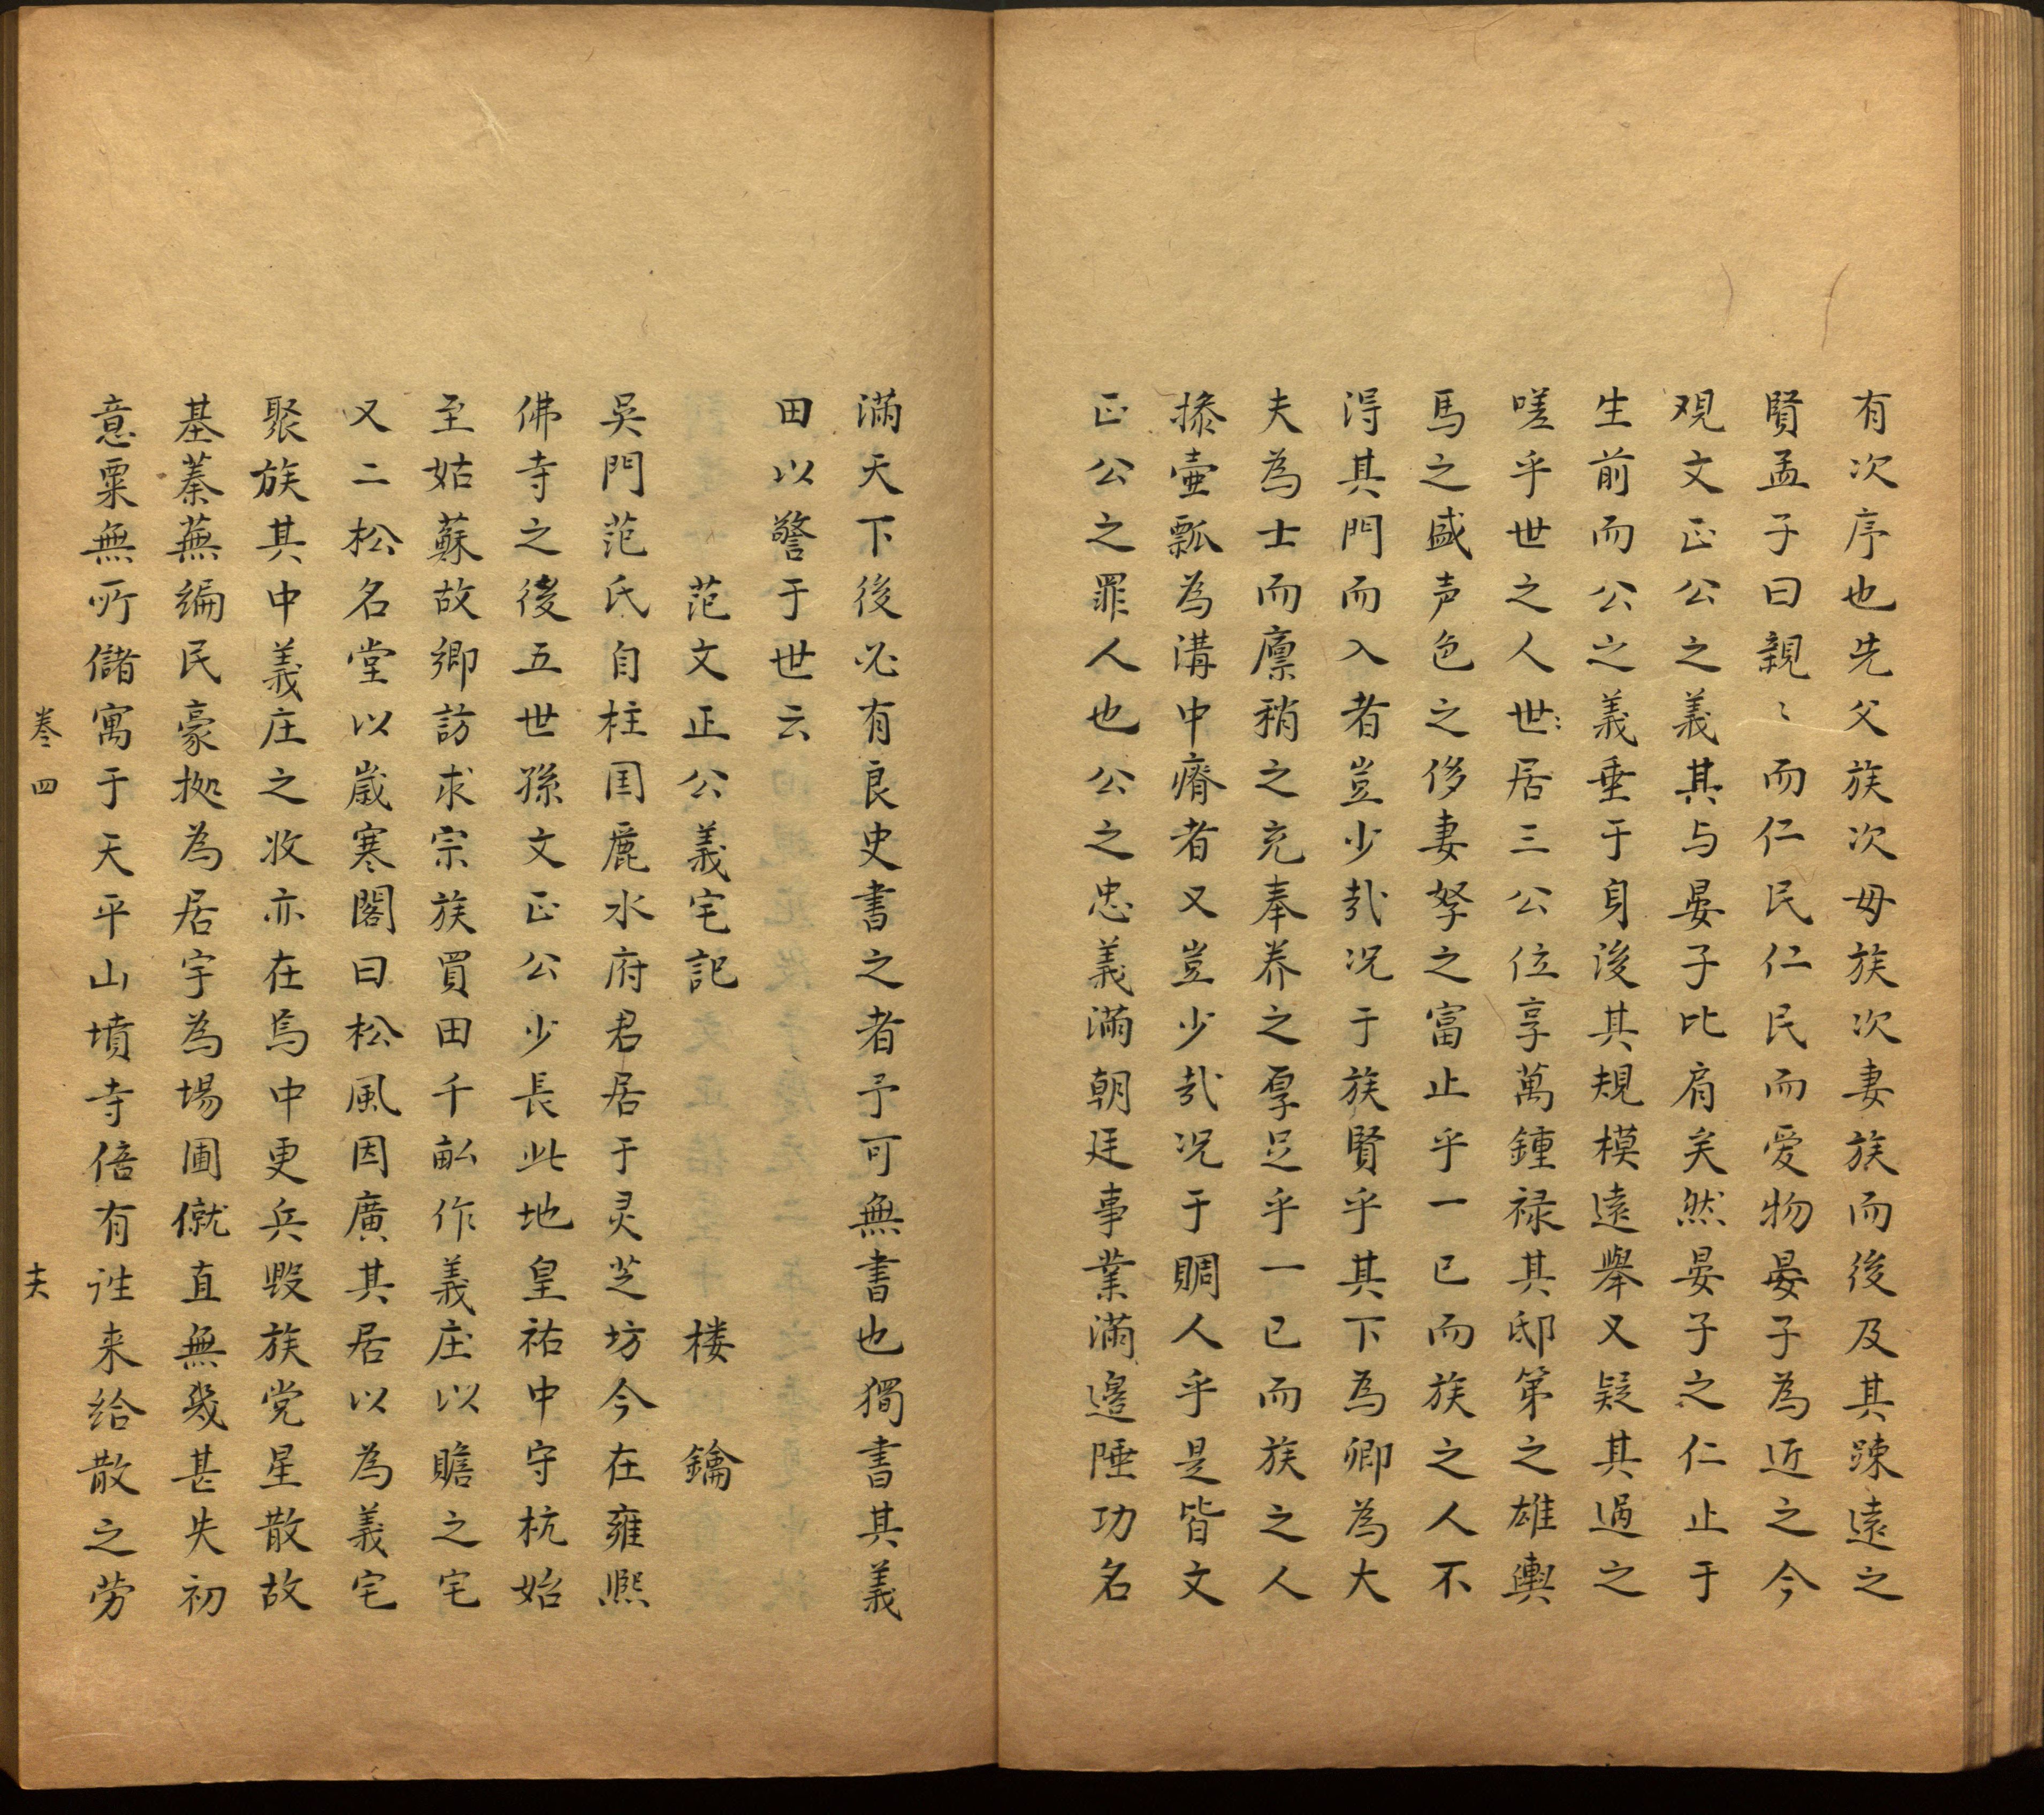 有次序也先父族次母族次妻族而後及其踈遠之
賢孟子曰親〻而仁民仁民而爱物晏子為近之今
观文正公之義其与晏子比肩矣然晏子之仁止于
生前而公之義垂于身後其規模遠舉又疑其過之
嗟乎世之人世〻居三公位享萬鍾禄其邸第之雄輿
馬之盛声色之侈妻孥之富止乎一已而族之人不
得其門而入者豈少㢤况于族賢乎其下為卿為大
夫為士而廪稍之充奉养之厚足乎一已而族之人
操壷瓢為溝中瘠者又豈少㢤况于賙人乎是皆文
正公之罪人也公之忠義滿朝廷事業滿邊陲功名
滿天下後必有良史書之者予可無書也獨書其義
田以警于世云
范文正公義宅記 楼鑰
吳門范氏自柱国麗水府君居于灵芝坊今在雍熙
佛寺之後五世孫文正公少長此地皇祐中守杭始
至姑蘇故鄉訪求宗族買田千畝作義庄以贍之宅
又二松名堂以歲寒閣曰松風因廣其居以為義宅
聚族其中義庄之收亦在焉中更兵毁族党星散故
基蓁蕪编民豪拠為居宇為場圃僦直無幾甚失初
意粟無所儲寓于天平山墳寺倍有往来给散之劳
巻四
夫